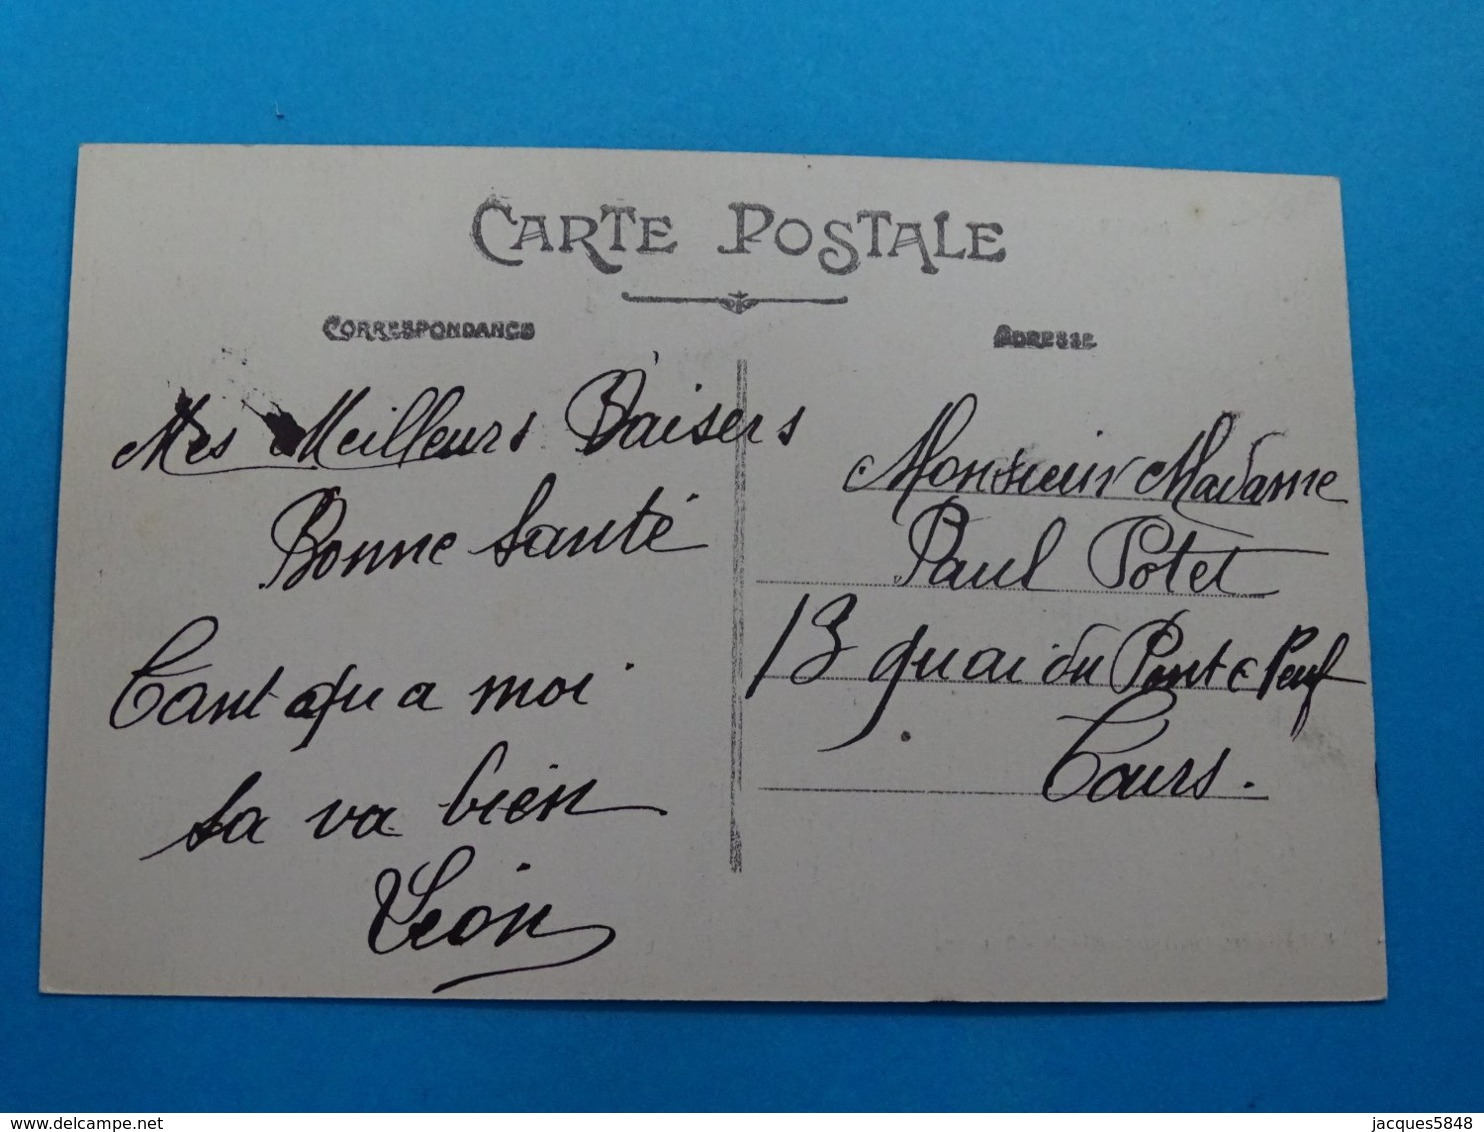 CARTE POSTALE
CORRESPONDANCE
ADRESSE
Mes Meilleurs Baisers
Bonne Santé
Tant qu a moi
sa va bien
Léon
Monsieur Madame
Paul Potet
13 quai du Pont Neuf
Tours.
jacques5848